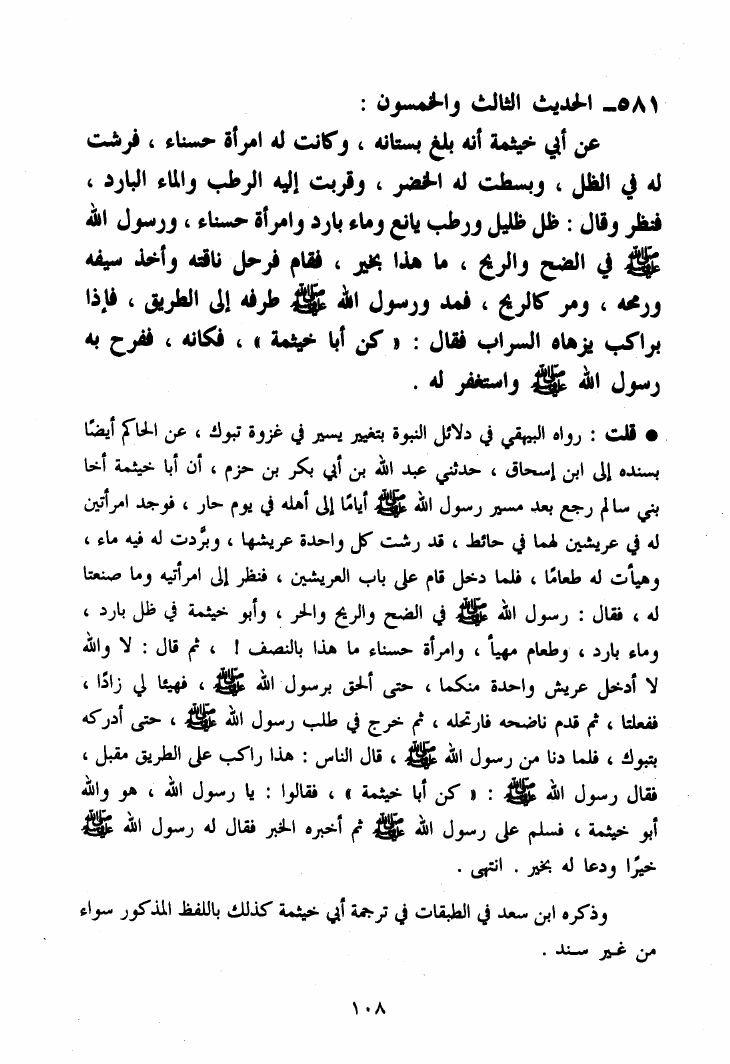 ٥٨١ــ الحديث الثالث والخمسون :
عن أبي خيثمة أنه بلغ بستانه ، وكانت له امرأة حسناء ، فرشت
له في الظل ، وبسطت له الخضر ، وقربت إليه الرطب والماء البارد ،
فنظر وقال : ظل ظليل ورطب يانع وماء بارد وامرأة حسناء ، ورسول الله
ﷺ في الضح والريح ، ما هذا بخير ، فقام فرحل ناقته وأخذ سيفه
ورمحه ، ومر كالريح ، فمد ورسول الله ﷺ طرفه إلى الطريق ، فإذا
براكب يزهاه السراب فقال : « كن أبا خيثمة » ، فكانه ، ففرح به
رسول الله ﷺ واستغفر له .
● قلت : رواه البيهقي في دلائل النبوة بتغيير يسير في غزوة تبوك ، عن الحاكم أيضًا
بسنده إلى ابن إسحاق ، حدثني عبد الله بن أبي بكر بن حزم ، أن أبا خيثمة أخا
بني سالم رجع بعد مسير رسول الله ﷺ أيامًا إلى أهله في يوم حار ، فوجد امرأتين
له في عريشين لهما في حائط ، قد رشت كل واحدة عريشها ، وبرَّدت له فيه ماء ،
وهيأت له طعامًا ، فلما دخل قام على باب العريشين ، فنظر إلى امرأتيه وما صنعتا
له ، فقال : رسول الله ﷺ في الضح والريح والحر ، وأبو خيثمة في ظل بارد ،
وماء بارد ، وطعام مهيأ ، وامرأة حسناء ما هذا بالنصف ! ، ثم قال : لا والله
لا أدخل عريش واحدة منكما ، حتى ألحق برسول الله ﷺ ، فهيئا لي زادًا ،
ففعلتا ، ثم قدم ناضحه فارتحله ، ثم خرج في طلب رسول الله ﷺ ، حتى أدركه
بتبوك ، فلما دنا من رسول الله ﷺ ، قال الناس : هذا راكب على الطريق مقبل ،
فقال رسول الله ﷺ : « كن أبا خيثمة » ، فقالوا : يا رسول الله ، هو والله
أبو خيثمة ، فسلم على رسول الله ﷺ ثم أخبره الخبر فقال له رسول الله ﷺ
خيرًا ودعا له بخير . انتهى .
وذكره ابن سعد في الطبقات في ترجمة أبي خيثمة كذلك باللفظ المذكور سواء
من غير سند .
١٠٨